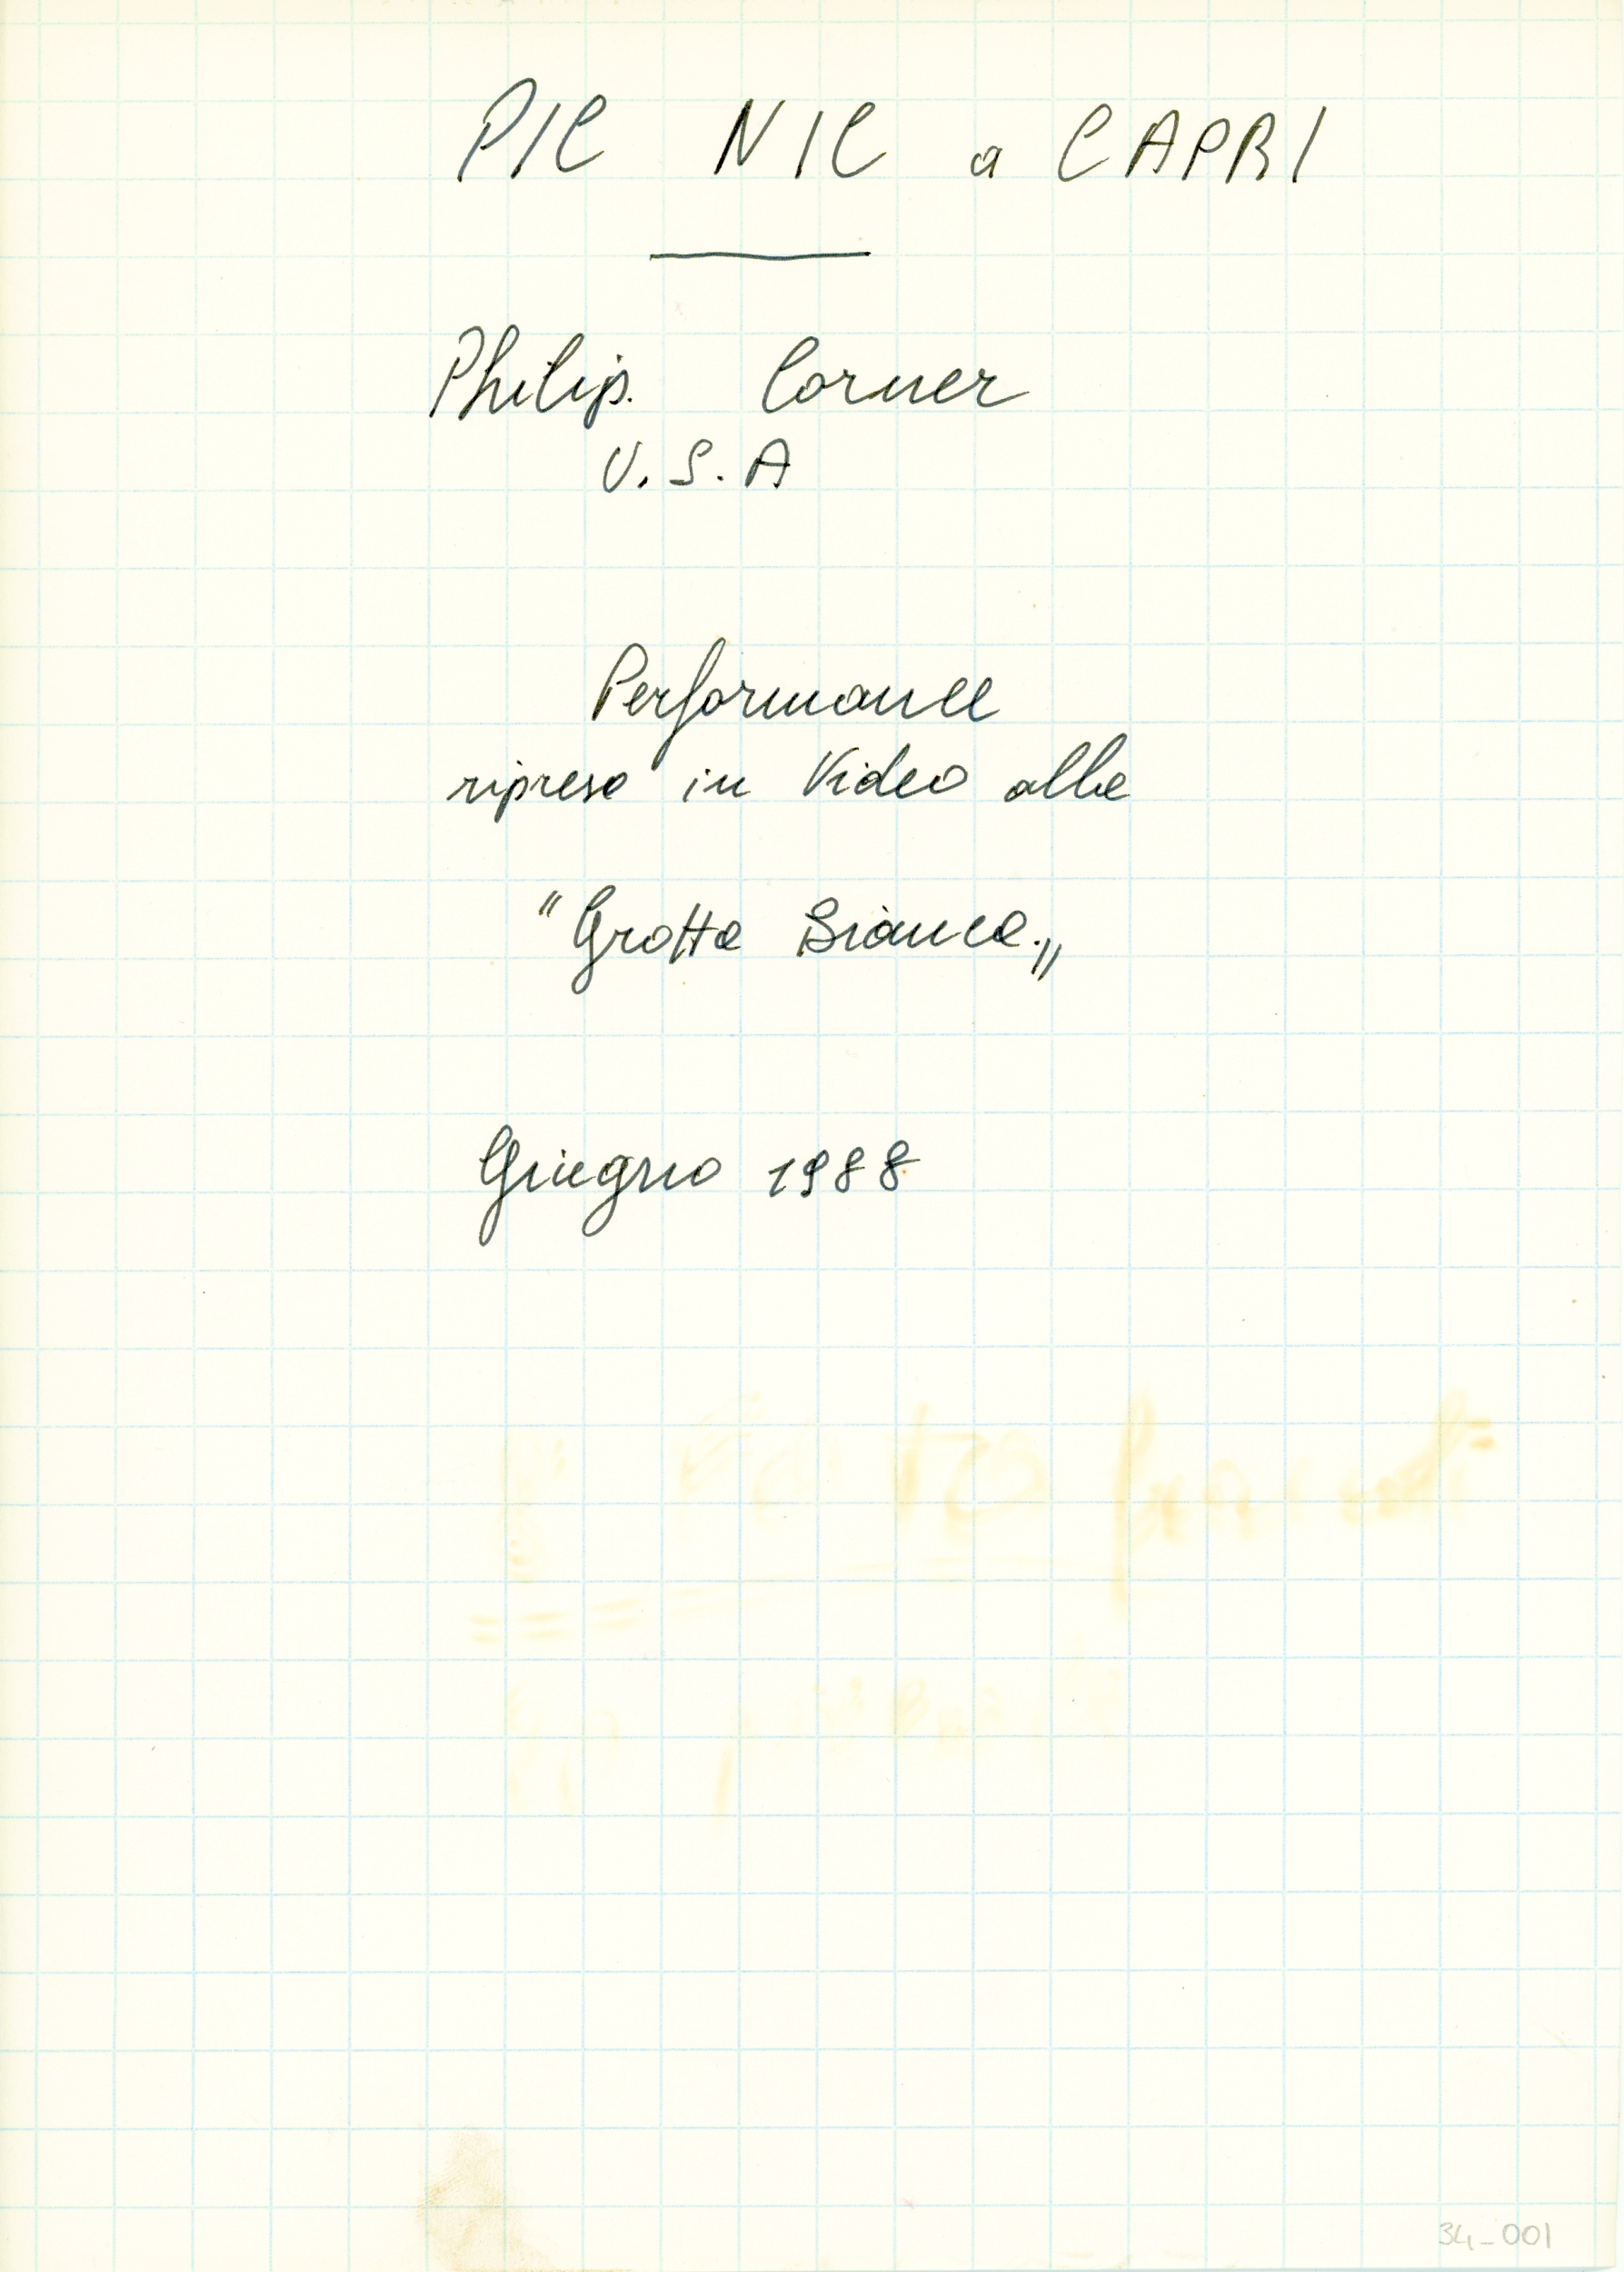 PIC NIC a CAPRI
Philip. Corner
U.S.A
Performance
ripresa in Video alla
"Grotta Bianca."
Giugno 1988
34_001